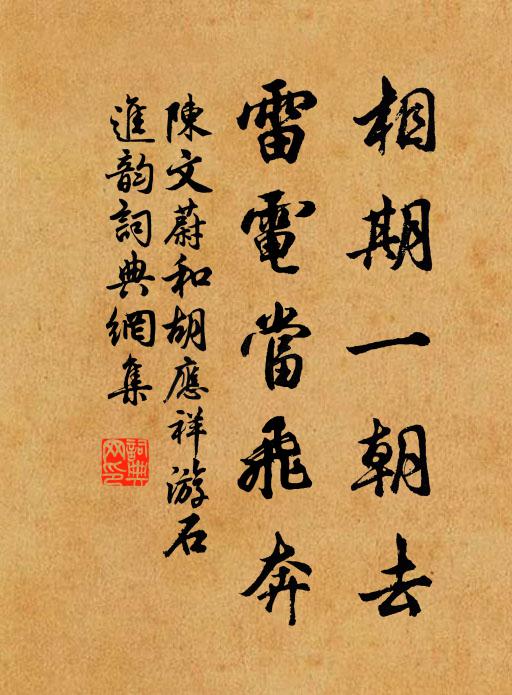 相期一朝去
雷電當飛奔
陳文蔚和胡應祥游石
進韵詞典網集
詞典网印